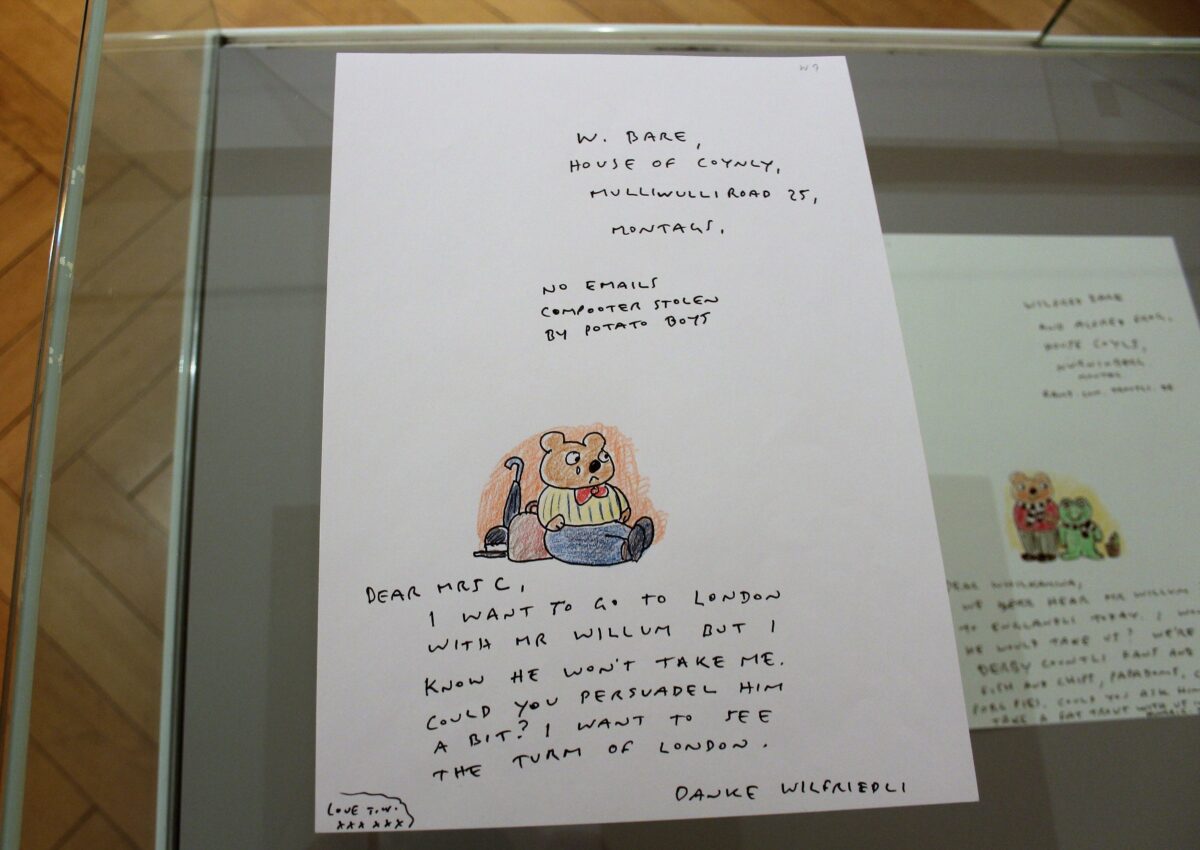 W9
W. BARE,
HOUSE OF COYNLY,
MULLIWULLI ROAD 25,
MONTAGS.
NO EMAILS
COMPOOTER STOLEN
BY POTATO BOYS
DEAR MRS C,
I WANT TO GO TO LONDON
WITH MR WILLUM BUT I
KNOW HE WON'T TAKE ME.
COULD YOU PERSUADEL HIM
A BIT? I WANT TO SEE
THE TURM OF LONDON.
DANKE WILFRIEDLI
LOVE T.W.
XXX XXX
WILFRED BARE
AND FROG,
HOUSE COYLS,
DEAR
WE HEAR MR WILLUM
TO ENGLANDLI TODAY. I
HE WOULD TAKE US? WE'RE
DERBY COUNTLI FANS AND
FISH AND CHIPS, PAPADOMS,
PORG PIES. COULD YOU ASK
TAKE A WITH US